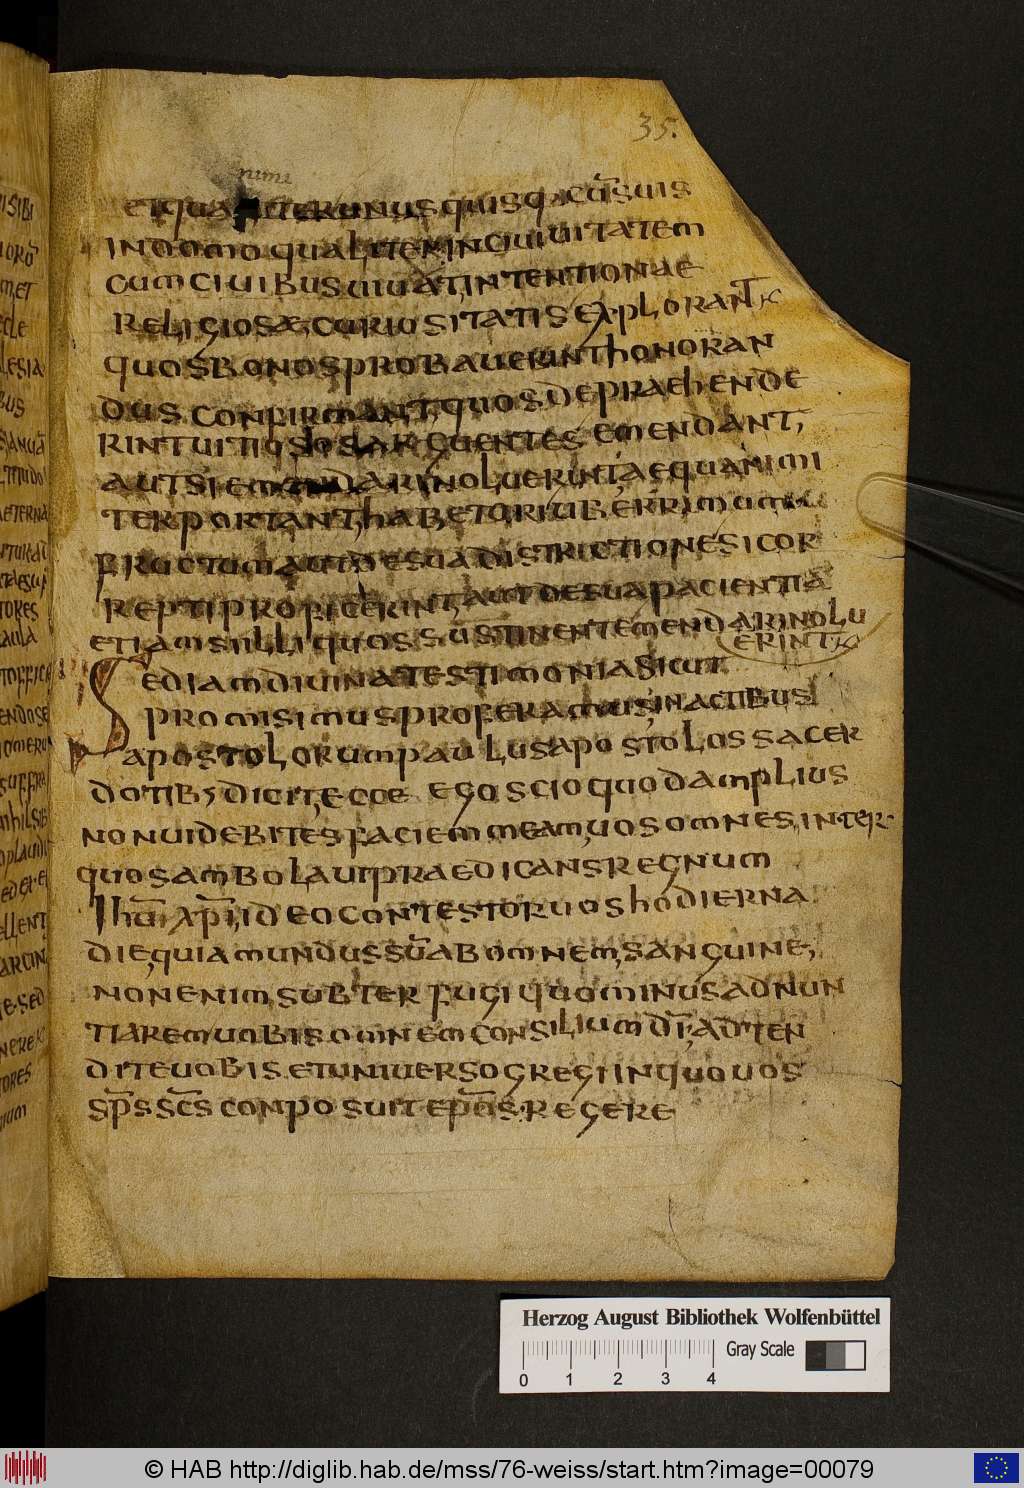 35.
nimi
INDOMOQUALITERINCIUIUITATEM
CUMCIUIBUSUIUAT,INTENTIONAE
RELIGIOSAE,CURIUSITATISEXPLORANT,
QUOSBONOSPROBAUERUNThONORAN
DUSCONFIRMANT,QUOSDEPRAEhENDE
RINTUITIOSOSARGUENTESEMENDANT,
AUTSIEMENDARINOLUERINTAEQUANIMI
TERPORTANT,hABETURI
FRUCTUMAUTDESUADISTRICTIONESICOR
REPTIPROFICERINTAUTDESUAPACIENTIA
ETIAMSIILLIQUOSSUSTINENTEMENDARINOLU
ERINT
SEDIAMDIUINATESTIMONIASICUT
PROMISIMUSPROFERAMUS,INACTIBUS
APOSTOLORUMPAULUSAPOSTOLOSSACER
DOTIB;DICIT,ECCEEGOSCIOQUODAMPLIUS
NONUIDEBITESFACIEMMEAMUOSOMNES,INTER
QUOSAMBOLAUIPRAEDICANSREGNUM
IhU XPI,IDEOCONTESTORUOShODIERNA
DIE,QUIAMUNDUSSUABOMNEM,SANGUINE,
NONENIMSUBTERFUGIQUOMINUSADNUN
TIAREMUOBISOMNEMCONSILIUMDI,ADTEN
DITEUOBISETUNIUERSOGREGIINQUOUOS
SPSSCSCONPOSUITEPCOSREGERE
Herzog August Bibliothek Wolfenbüttel
Gray Scale
0 1 2 3 4
© HAB http://diglib.hab.de/mss/76-weiss/start.htm?image=00079